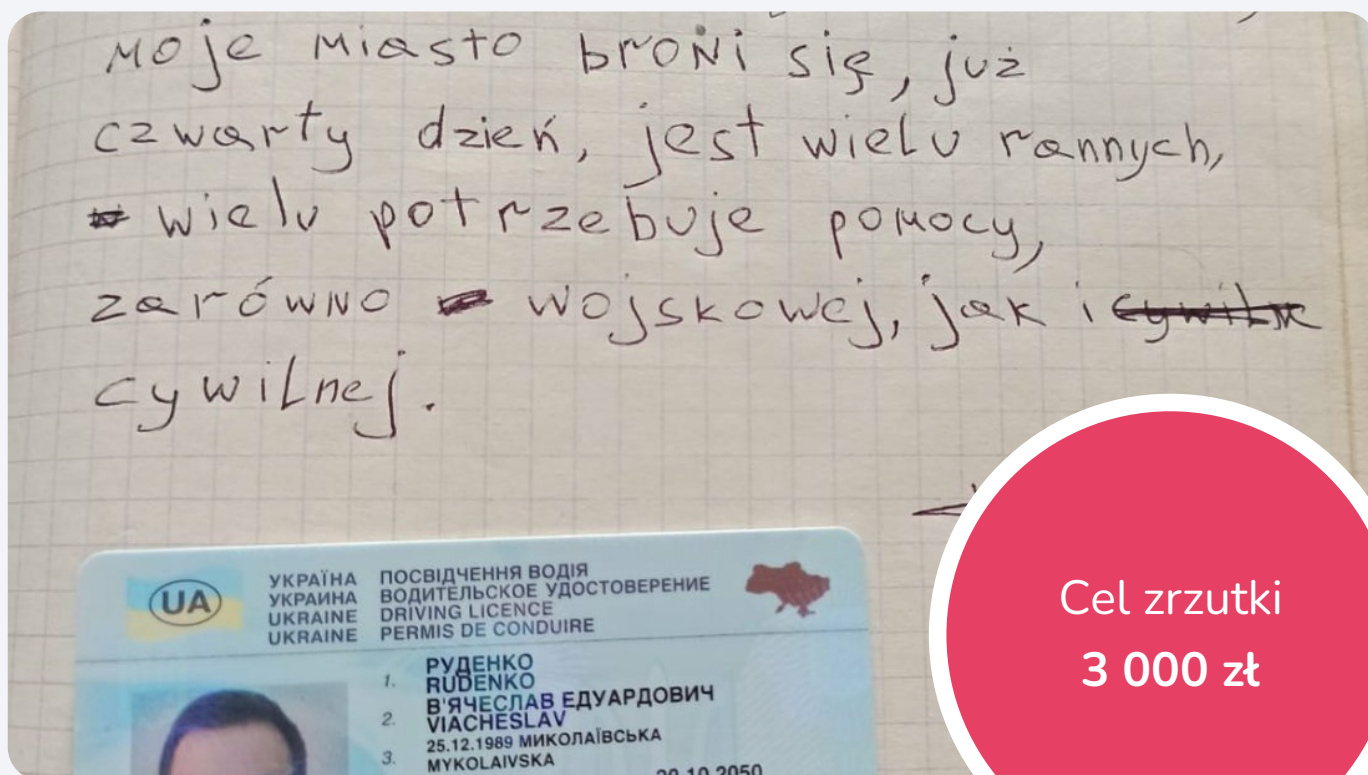 moje miasto broni się, już
czwarty dzień, jest wielu rannych,
wielu potrzebuje pomocy,
zarówno wojskowej, jak i
cywilnej.
UA
УКРАЇНА ПОСВІДЧЕННЯ ВОДІЯ
УКРАИНА ВОДИТЕЛЬСКОЕ УДОСТОВЕРЕНИЕ
UKRAINE DRIVING LICENCE
UKRAINE PERMIS DE CONDUIRE
1. РУДЕНКО
RUDENKO
2. В'ЯЧЕСЛАВ ЕДУАРДОВИЧ
VIACHESLAV
3. 25.12.1989 МИКОЛАЇВСЬКА
MYKOLAIVSKA
20.10.2050
Cel zrzutki
3 000 zł